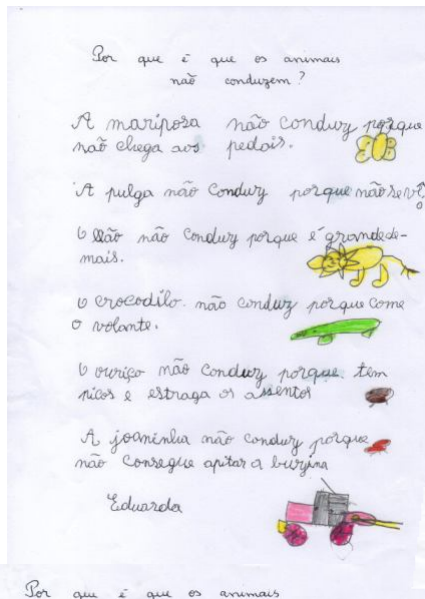 Por que é que os animais
não conduzem?
A mariposa não conduz porque
não chega aos pedais.
A pulga não conduz porque não se vê.
O leão não conduz porque é grande de-
mais.
O crocodilo não conduz porque come
o volante.
O ouriço não conduz porque tem
picos e estraga os assentos
A joaninha não conduz porque
não consegue apitar a buzina
Eduarda
Por que é que os animais